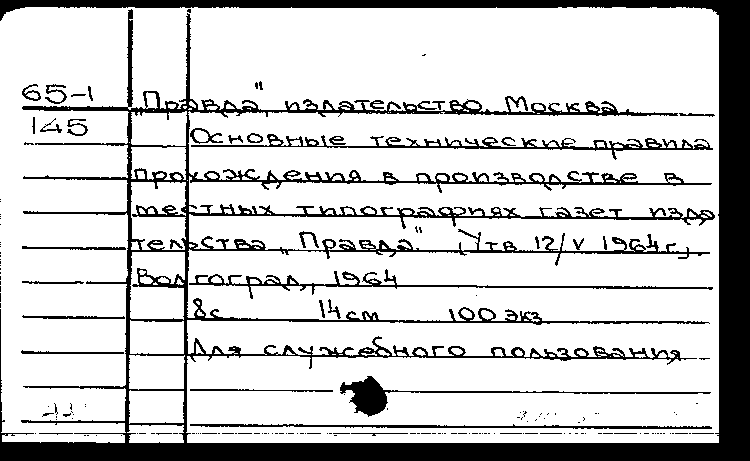 65-1
145
„Правда", издательство. Москва.
Основные технические правила
прохождения в производстве в
местных типографиях газет изда
тельства „Правда". (Утв 12/V 1964г).
Волгоград, 1964
8с 14см 100 экз
Для служебного пользования